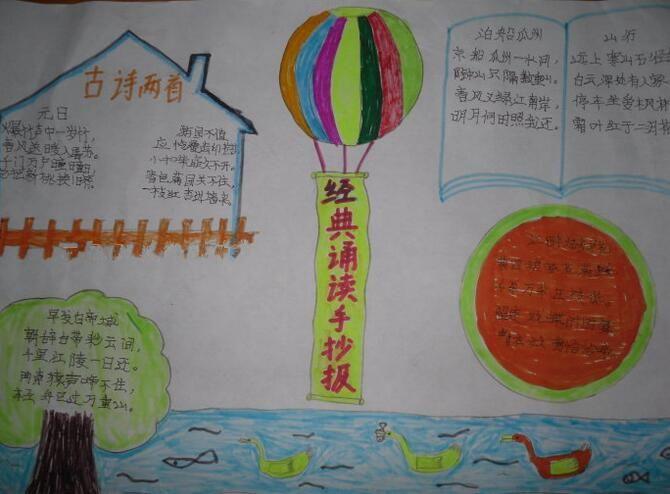 古诗两首
元日
爆竹声中一岁除,
春风送暖入屠苏。
千门万户曈曈日,
总把新桃换旧符。
游园不值
应怜屐齿印苍苔
小扣柴扉久不开。
春色满园关不住,
一枝红杏出墙来。
经典诵读手抄报
泊船瓜州
京口瓜州一水间,
钟山只隔数重山。
春风又绿江南岸,
明月何时照我还。
山行
远上寒山石径
白云深处有人家
停车坐爱枫林
霜叶红于二月花
千朵万朵压枝低。
早发白帝城
朝辞白帝彩云间,
千里江陵一日还。
两岸猿声啼不住,
轻舟已过万重山。